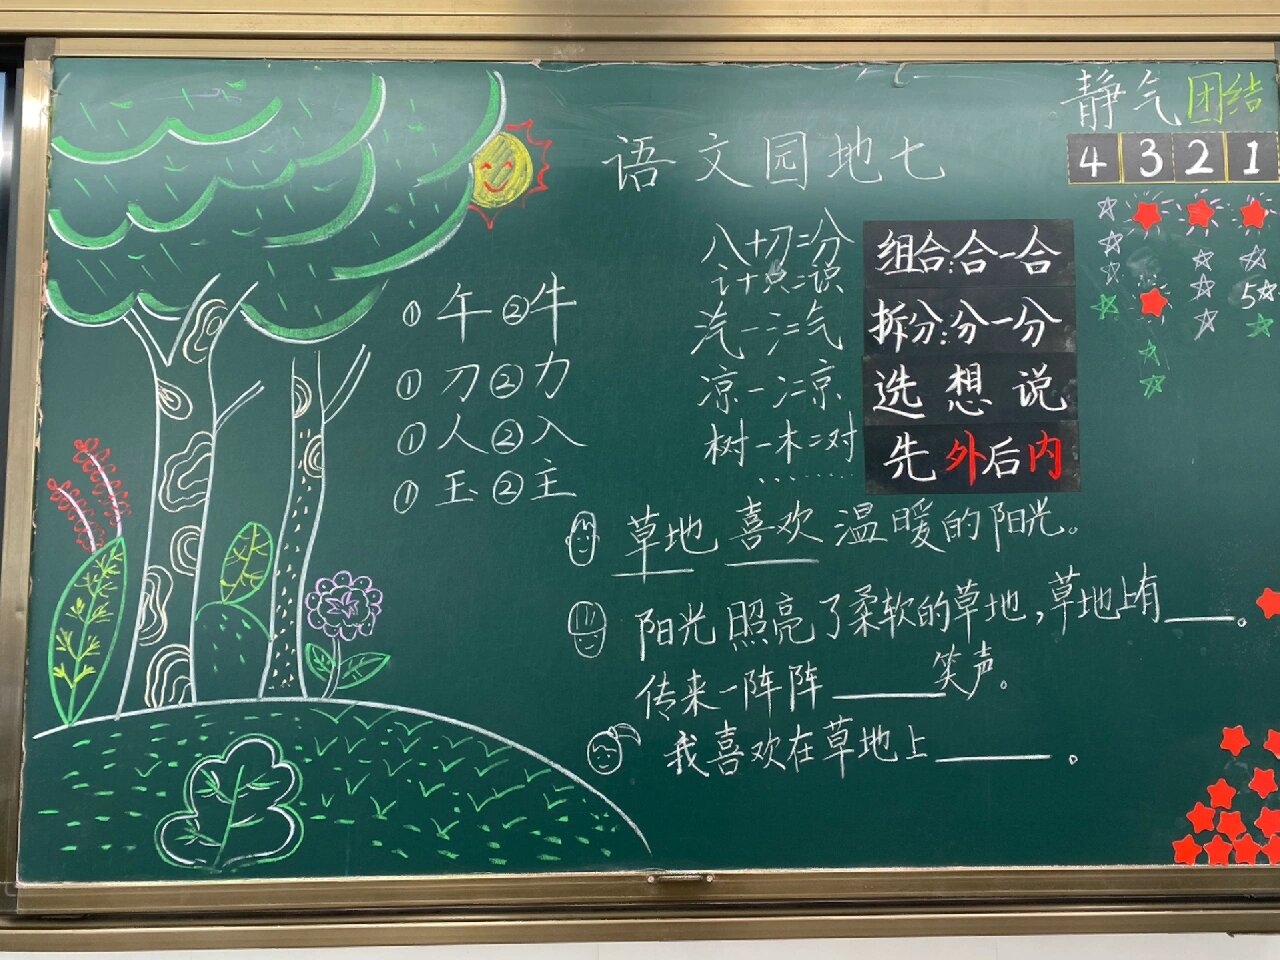 静气 团结
4 3 2 1
5
语文园地七
八十刀=分
讠+只=识
汽-氵=气
凉-冫=京
树-木=对
……
组合:合一合
拆分:分一分
选 想 说
先外后内
①午②牛
①刀②力
①人②入
①玉②主
草地 喜欢 温暖的阳光。
阳光照亮了柔软的草地,草地上有____。
传来一阵阵____笑声。
我喜欢在草地上____。